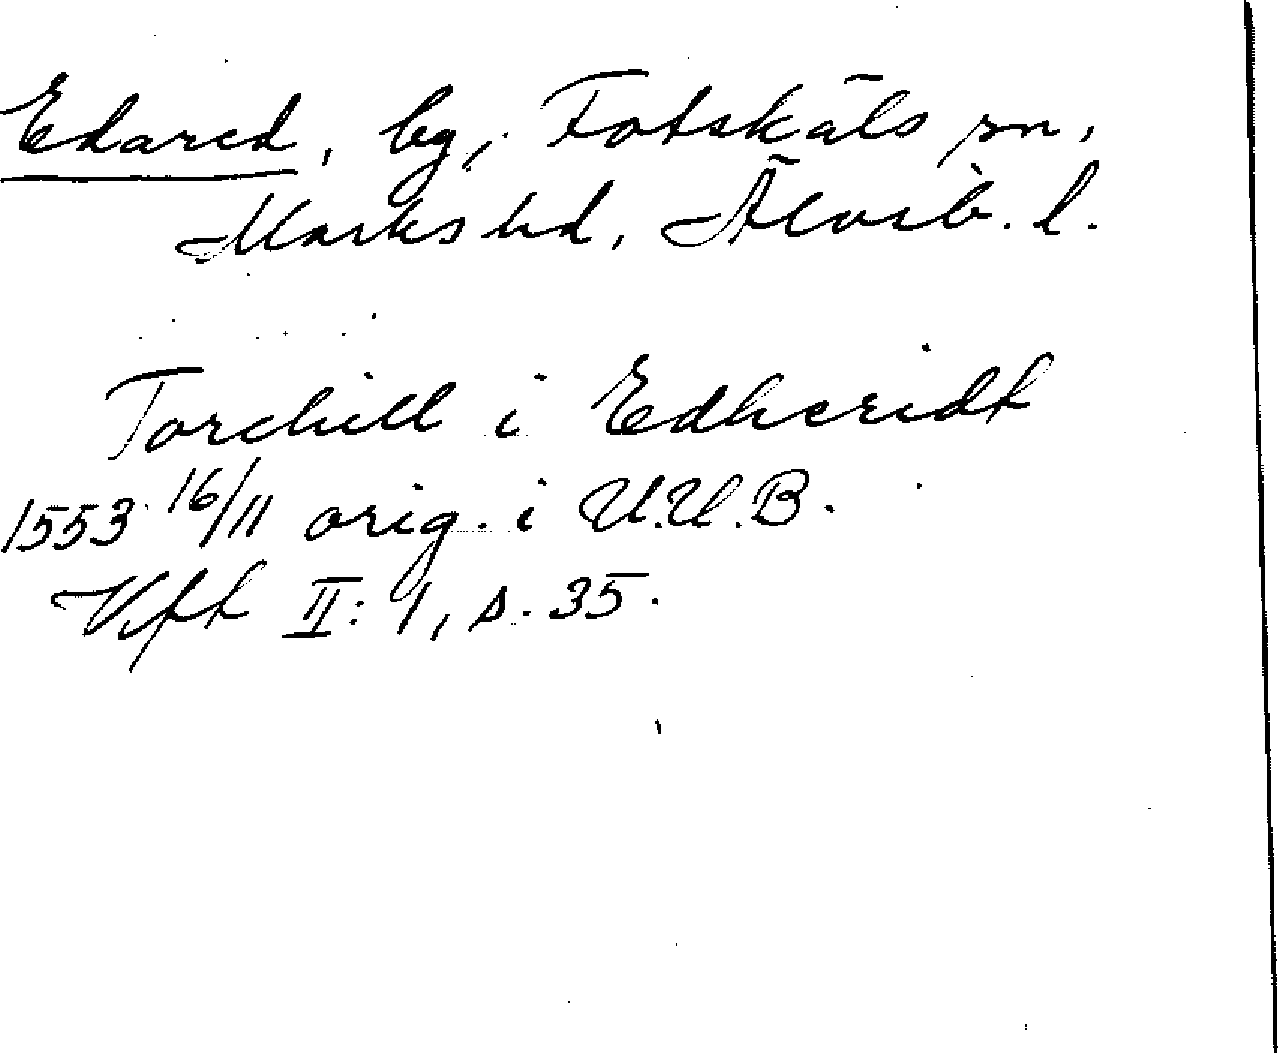 Edared, by, Fotskäls sn,
Marks hd, Älvsb. l.
Torchill i Edheridt
1553 16/11 orig. i U.U.B.
Vfft II: 1, s. 35.